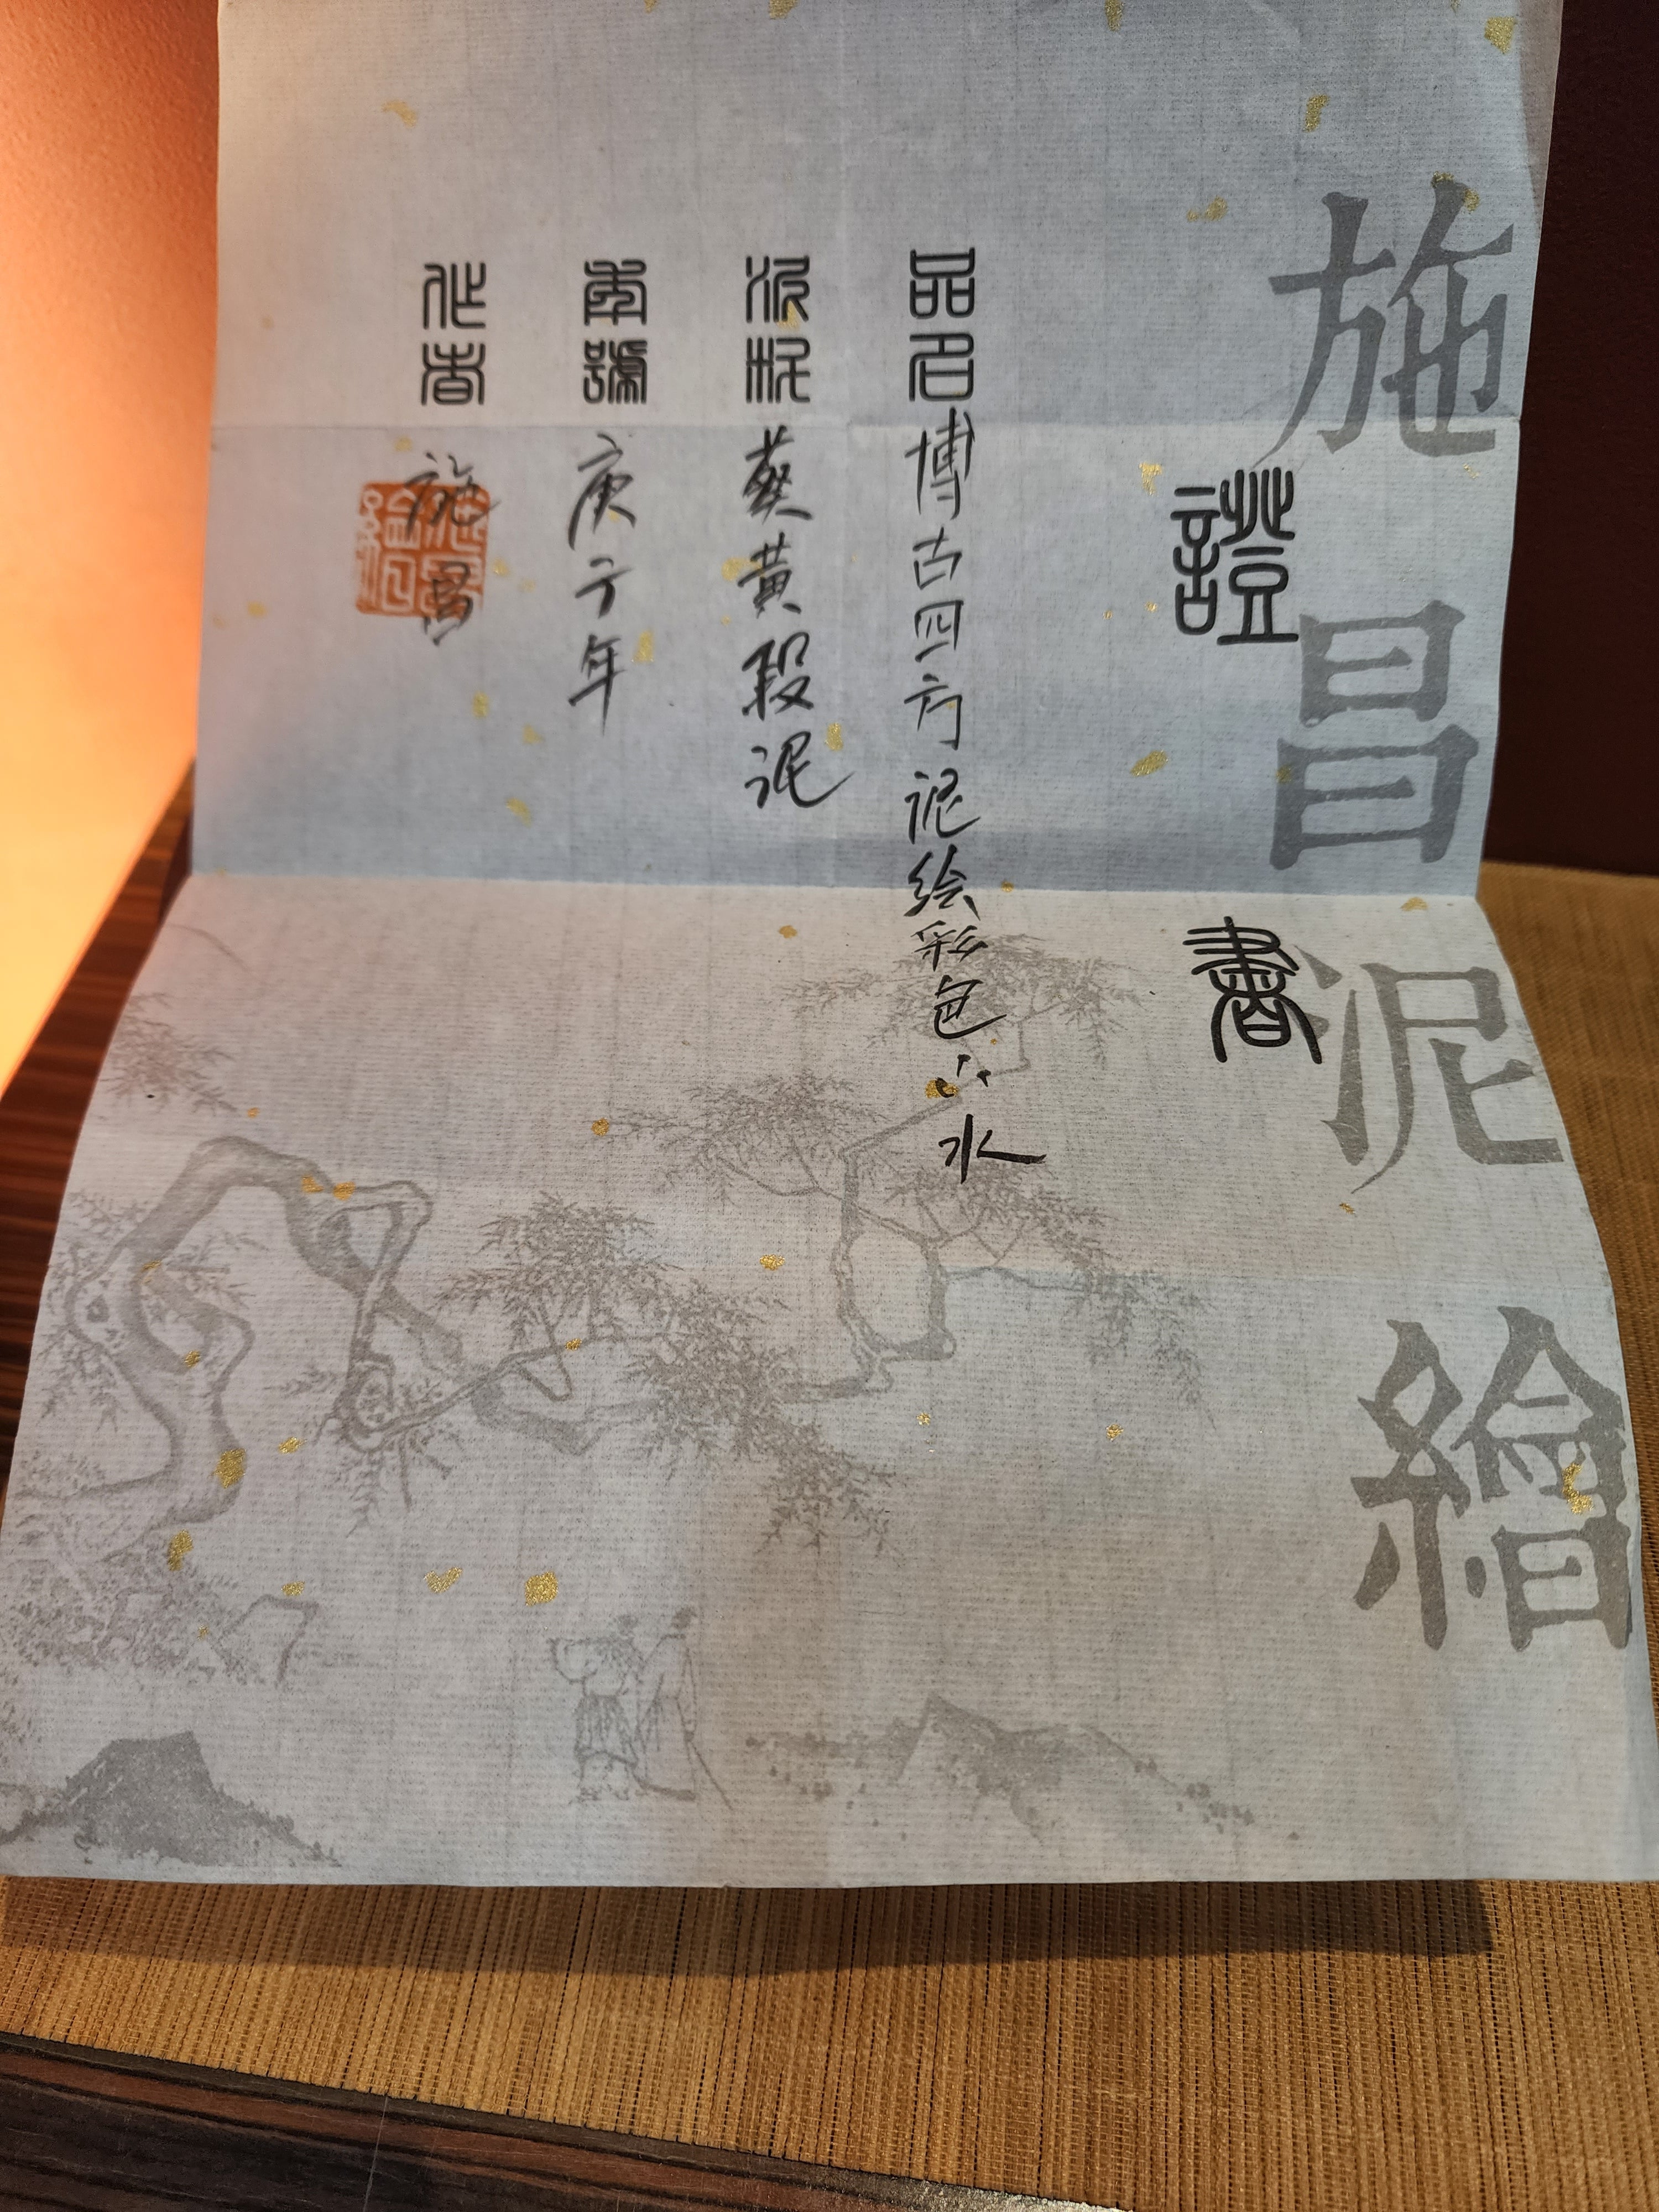 施昌泥繪
證書
品名 博古四方 泥绘彩色山水
泥料 葵黄段泥
年號 庚子年
作者 施昌
施昌泥繪